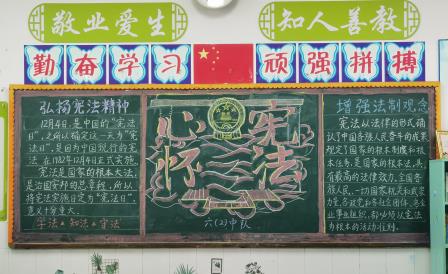 敬业爱生
知人善教
勤奋学习
顽强拼搏
弘扬宪法精神
12月4日,是中国的“宪法
日”,之所以确定这一天为“宪
法日”,是因为中国现行的宪
法在1982年12月4日正式实施。
宪法是国家的根本大法,
是治国安邦的总章程,所以
将宪法实施日定为“宪法日”,
意义十分重大。
学法 知法 守法
心怀
宪法
六(2)中队
增强法制观念
宪法以法律的形式确
认了中国各族人民奋斗的成果,
规定了国家的根本制度和根
本任务,是国家的根本法,具
有最高的法律效力。全国各
族人民、一切国家机关和武装
力量、各政党和各社会团体、各企
业事业组织,都必须以宪法
为根本的活动准则。